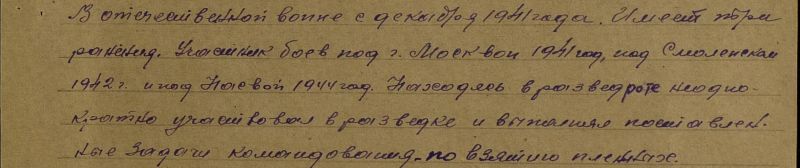 В отечественной воине с декабря 1941 года. Имеет три
ранения. Участник боев под г. Москвой 1941 год, под Смоленском
1942 г. и под Нарвой 1944 год. Находясь в разведроте неодно-
кратно участвовал в разведке и выполнял поставлен-
ные задачи командования - по взятию пленных.